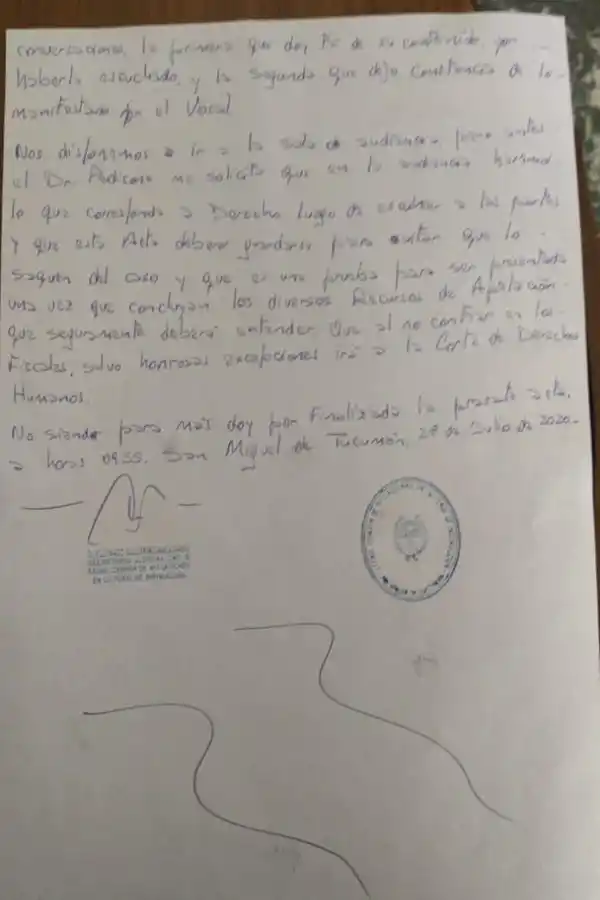 conversaciones, la primera que doy Fe de su contenido, por
haberla escuchado, y la segunda que dejo constancia de lo
manifestado por el Vocal
Nos disponemos a ir a la sala de audiencia pero antes
el Dr. me solicita que en la audiencia haremos
lo que corresponda a Derecho luego de escuchar a las partes
y que esta Acta deberá guardarse para evitar que lo
saquen del caso y que es una prueba para ser presentada
una vez que concluyan los diversos Recursos de Apelación
que seguramente deberá entender que al no confiar en los
Fiscales, salvo honrosas excepciones irá a la Corte de Derechos
Humanos.
No siendo para más doy por Finalizada la presente acta,
a horas 0955. San Miguel de Tucumán, de Julio de 2020.-